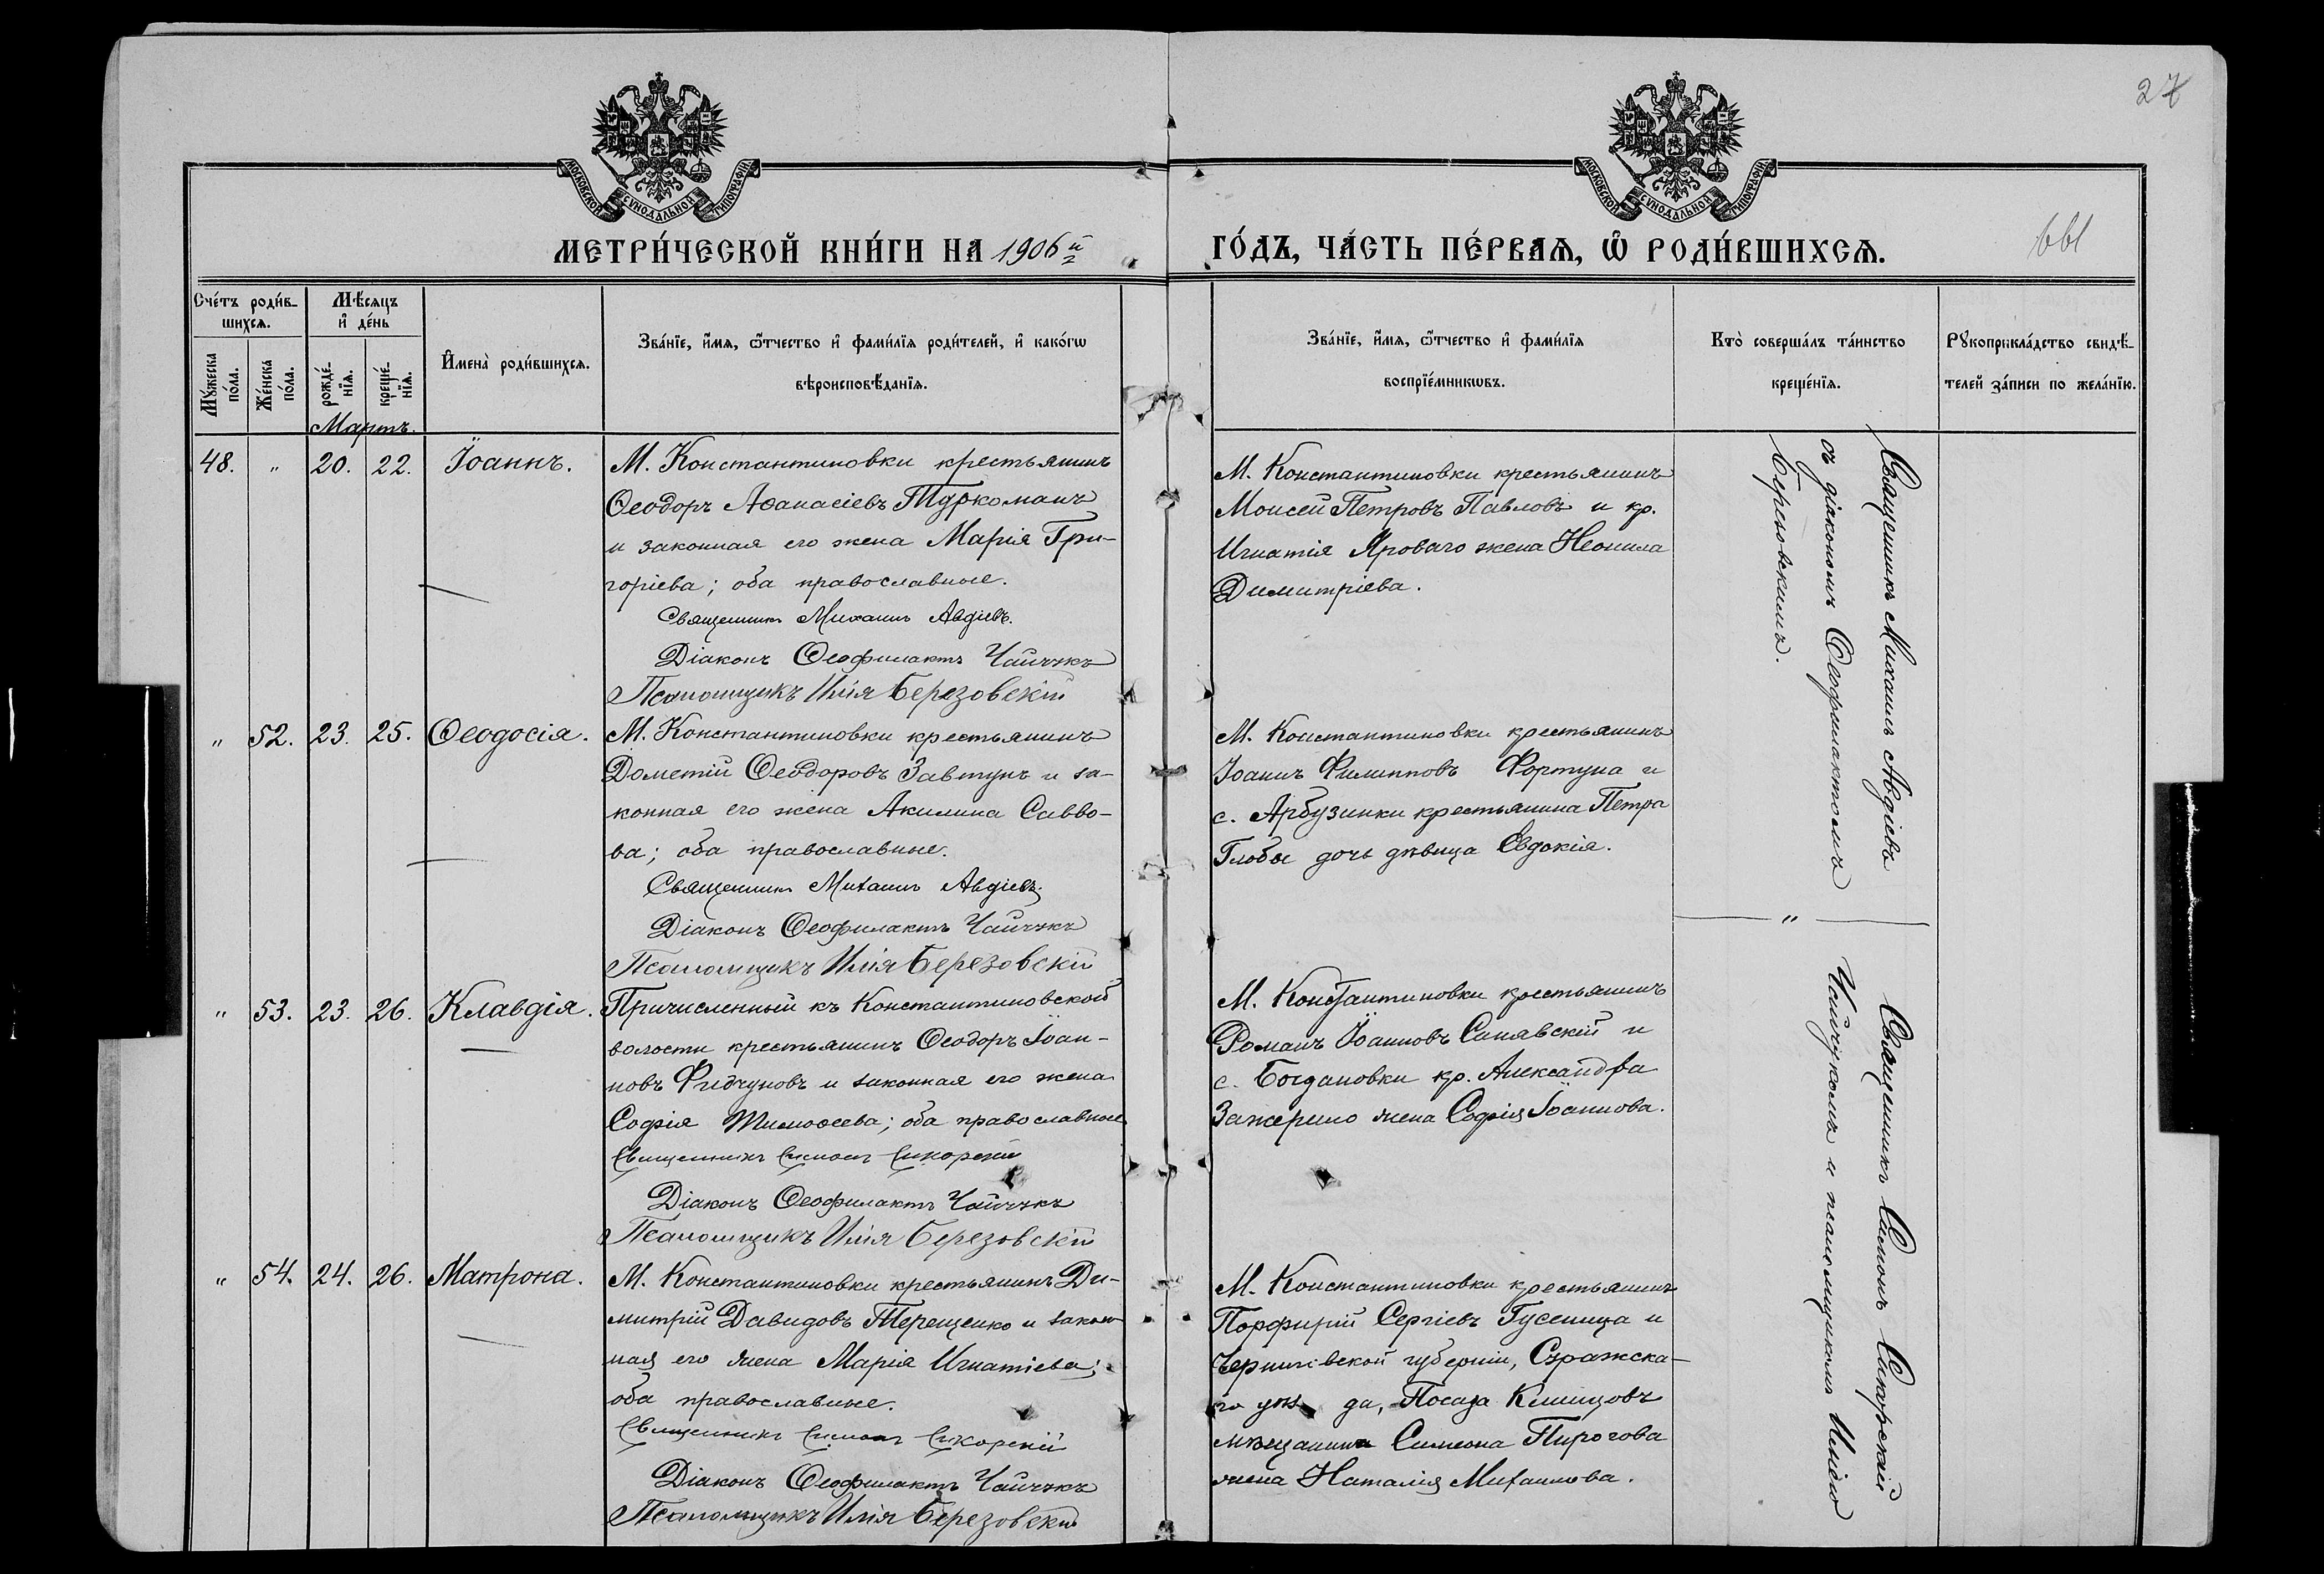 27
МОСКОВСКОЙ СѴНОДАЛЬНОЙ ТИПОГРАФІИ
МОСКОВСКОЙ СѴНОДАЛЬНОЙ ТИПОГРАФІИ
МЕТРИ́ЧЕСКОЙ КНИ́ГИ НА 1906й ГО́ДЪ, ЧА́СТЬ ПЕ́РВАѦ, Ѡ҆ РОДИ́ВШИХСѦ.
Сче́тъ роди́в-
шихсѧ.
Мѣ́сѧцъ
и҆ де́нь
Мꙋ́жеска
по́ла.
Же́нска
по́ла.
рожде́-
нїѧ.
креще́-
нїѧ.
И҆мена̀ роди́вшихсѧ.
Зва́нїе, и҆́мѧ, ѻ҆́тчество и҆ фами́лїѧ роди́телей, и҆ како́гѡ
вѣроисповѣ́данїѧ.
Зва́нїе, и҆́мѧ, ѻ҆́тчество и҆ фами́лїѧ
воспрїе́мникѡвъ.
Кто̀ соверша́лъ та́инство
креще́нїѧ.
Рꙋкоприкла́дство свидѣ́-
телей за́писи по жела́нїю.
Мартъ.
48. " 20. 22. Іоаннъ.
М. Константиновки крестьянинъ
Ѳеодоръ Аѳанасіевъ Туркоманъ
и законная его жена Марія Гри-
горіева; оба православные.
Священникъ Михаилъ Авдіевъ.
Діаконъ Ѳеофилактъ Чайчукъ
Псаломщикъ Илія Березовскій
М. Константиновки крестьянинъ
Моисей Петровъ Павловъ и кр.
Игнатія Яроваго жена Неонила
Димитріева.
Священникъ Михаилъ Авдіевъ
съ діакономъ Ѳеофилактомъ
" 52. 23. 25. Ѳеодосія.
М. Константиновки крестьянинъ
Дометій Ѳеодоровъ Завтунъ и за-
конная его жена Акилина Савво-
ва; оба православные.
Священникъ Михаилъ Авдіевъ
Діаконъ Ѳеофилактъ Чайчукъ
Псаломщикъ Илія Березовскій
М. Константиновки крестьянинъ
Іоаннъ Филипповъ Фортуна и
с. Арбузинки крестьянина Петра
Глобы дочь дѣвица Евдокія.
"
" 53. 23. 26. Клавдія.
Причисленный къ Константиновской
волости крестьянинъ Ѳеодоръ Іоан-
новъ и законная его жена
Софія Тимоѳеева; оба православные
Священникъ Симонъ Сикорскій
Діаконъ Ѳеофилактъ Чайчукъ
Псаломщикъ Илія Березовскій
М. Константиновки крестьянинъ
Романъ Іоанновъ Синявскій и
с. Богдановки кр. Александра
жена Софія Іоаннова.
Священникъ Симонъ Сикорскій
Чайчукомъ и псаломщикомъ Иліею
" 54. 24. 26. Матрона.
М. Константиновки крестьянинъ Ди-
митрій Давидовъ Терещенко и закон-
ная его жена Марія Игнатіева;
оба православные.
Священникъ Симонъ Сикорскій
Діаконъ Ѳеофилактъ Чайчукъ
Псаломщикъ Илія Березовскій
М. Константиновки крестьянинъ
Порфирій Сергіевъ Гусеница и
Черниговской губерніи, Суражска-
го уѣзда, Посада Клинцовъ
мѣщанина Симеона Пирогова
жена Наталія Михаилова.